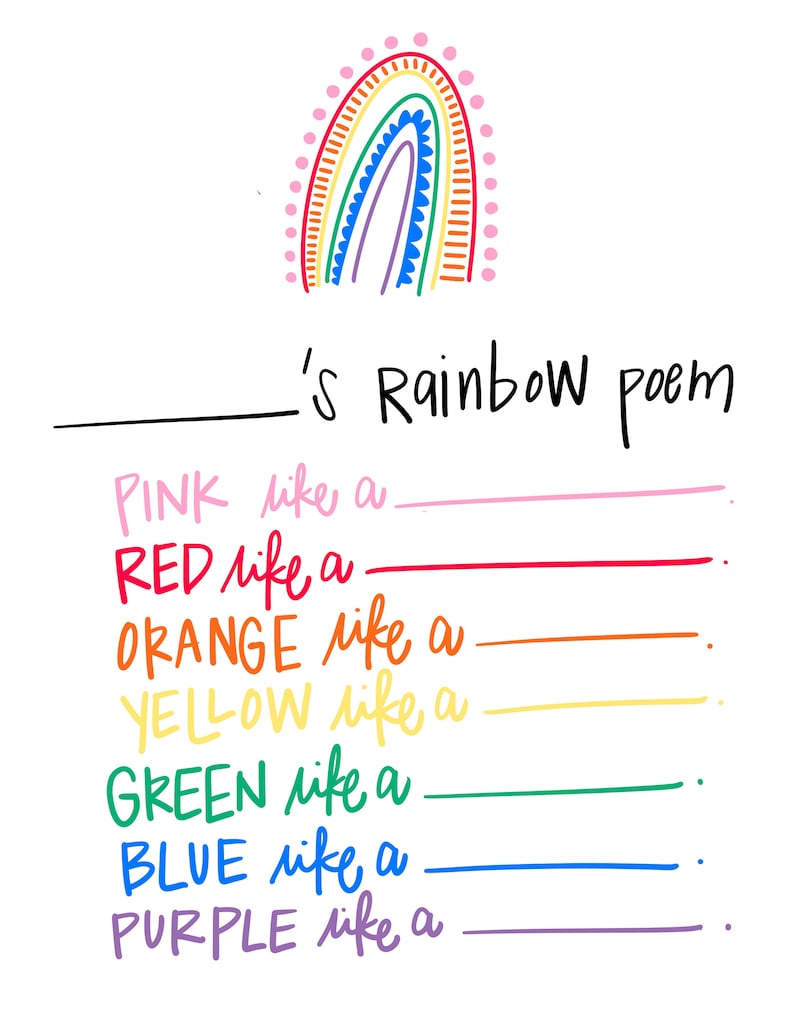 ________'s Rainbow poem
PINK like a ________.
RED like a ________.
ORANGE like a ________.
YELLOW like a ________.
GREEN like a ________.
BLUE like a ________.
PURPLE like a ________.